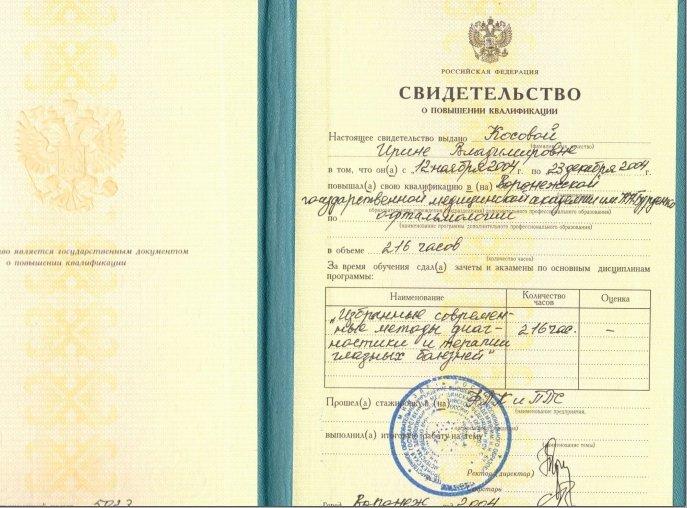 во является государственным документом
о повышении квалификации
5023
РОССИЙСКАЯ ФЕДЕРАЦИЯ
СВИДЕТЕЛЬСТВО
О ПОВЫШЕНИИ КВАЛИФИКАЦИИ
Настоящее свидетельство выдано Косовой
Ирине Владимировне
в том, что он(а) с 12 ноября 2004 г. по 23 декабря 2004 г.
повышал(а) свою квалификацию в (на) Воронежской
государственной медицинской академии им. Н.Н. Бурденко
по офтальмологии
(наименование программы дополнительного профессионального образования)
в объеме 216 часов
(количество часов)
За время обучения сдал(а) зачеты и экзамены по основным дисциплинам
программы:
Наименование Количество часов Оценка
„Избранные современ-
ные методы диаг- 216 час. –
ностики и терапии
глазных болезней"
Прошел(а) стажировку в (на) ФПК и ППС
(наименование предприятия,
выполнил(а) итоговую работу на тему
(наименование темы)
Ректор (директор)
Секретарь
Город Воронеж 2004